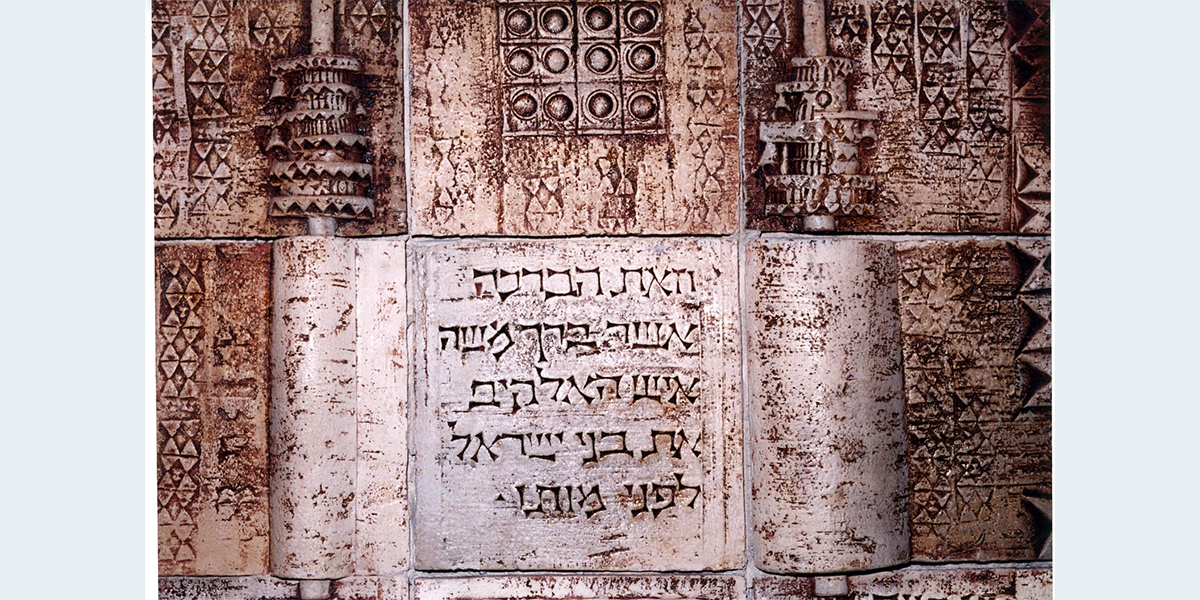 וזאת הברכה
אשר ברך משה
איש האלקים
את בני ישראל
לפני מותו